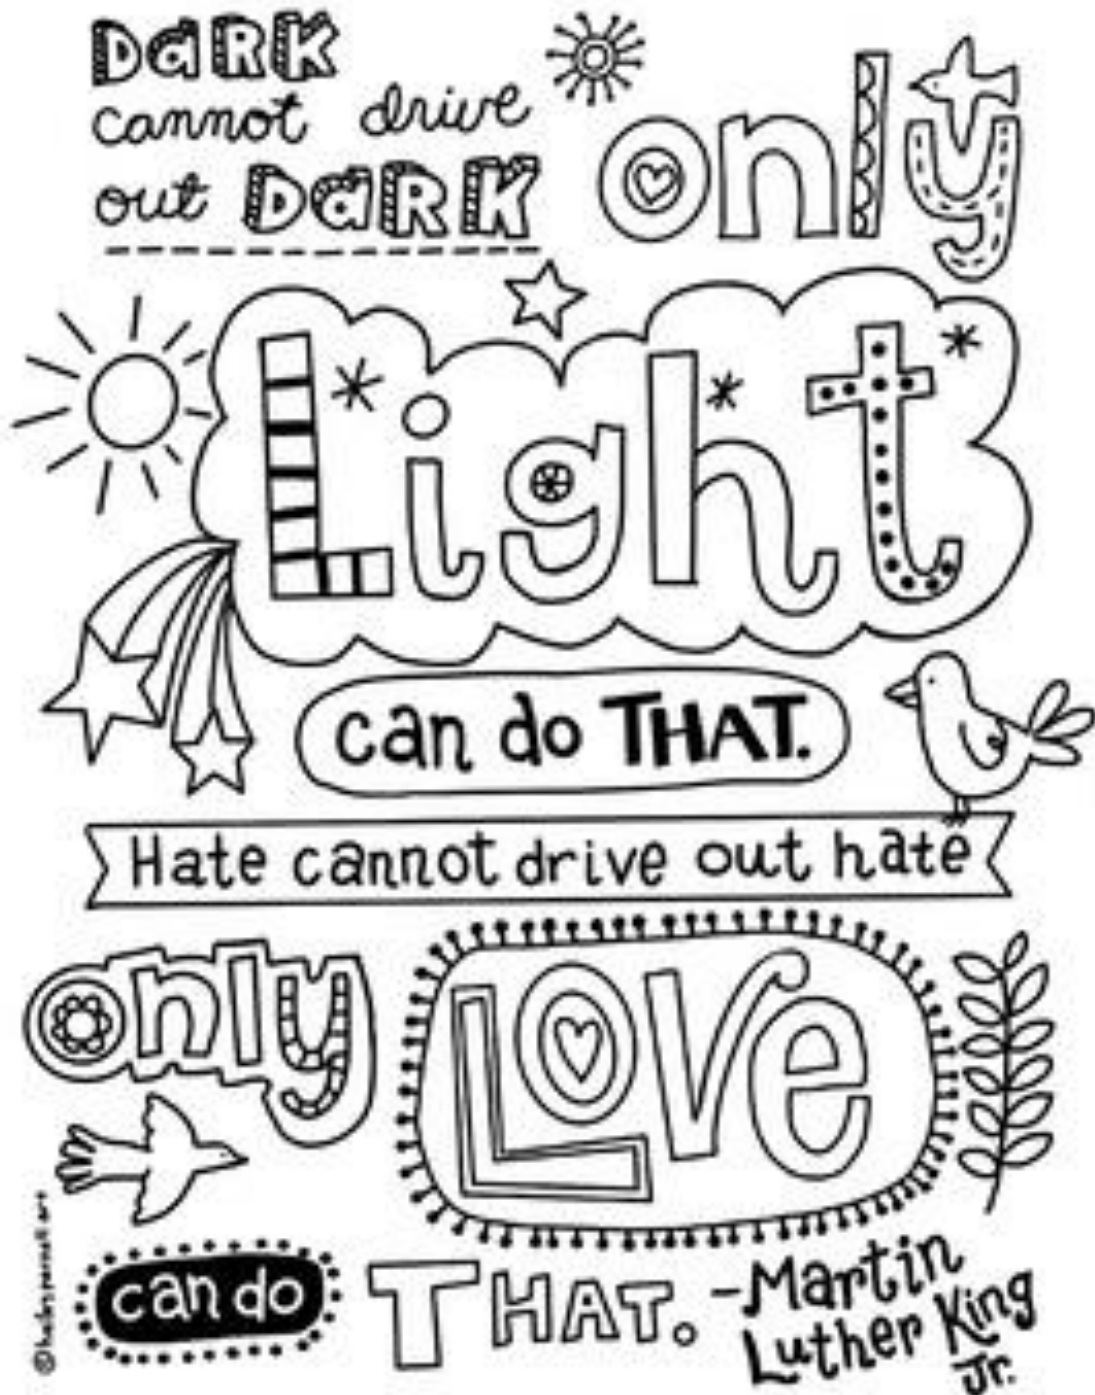 DaRK
cannot drive
out DaRK
only
Light
can do THAT.
Hate cannot drive out hate
only
Love
can do
THAT.
-Martin
Luther King
Jr.